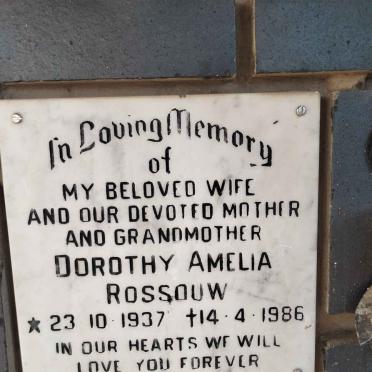 In Loving Memory
of
MY BELOVED WIFE
AND OUR DEVOTED MOTHER
AND GRANDMOTHER
DOROTHY AMELIA
ROSSOUW
★ 23 10 1937 †14 · 4 · 1986
IN OUR HEARTS WE WILL
LOVE YOU FOREVER